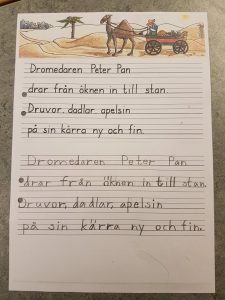 Dromedaren Peter Pan
drar från öknen in till stan.
Druvor, dadlar, apelsin
på sin kärra ny och fin.
Dromedaren Peter Pan
drar från öknen in till stan.
Druvor, dadlar, apelsin
på sin kärra ny och fin.